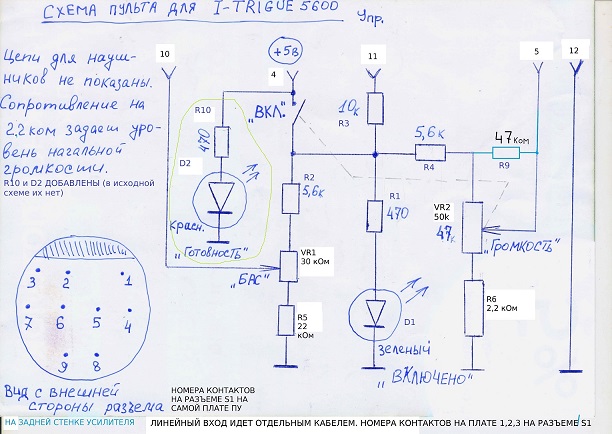 СХЕМА ПУЛЬТА ДЛЯ I-TRIGUE 5600
Упр.
Цепи для науш-
ников не показаны.
Сопротивление на
2,2 ком задает уро-
вень начальной
громкости.
R10 и D2 ДОБАВЛЕНЫ (в исходной
схеме их нет)
10
+5В
4
11
5
12
R10
470
D2
красн.
"ГОТОВНОСТЬ"
"ВКЛ."
10к
R3
R2
5,6к
VR1
30 кОм
"БАС"
R5
22
кОм
R1
470
D1
зеленый
"ВКЛЮЧЕНО"
5,6к
R4
47 Ком
R9
VR2
50k
47к
"ГРОМКОСТЬ"
R6
2,2 кОм
3 2 1
7 6 5 4
9 8
Вид с внешней
стороны разъема
НОМЕРА КОНТАКТОВ
НА РАЗЪЕМЕ S1 НА
САМОЙ ПЛАТЕ ПУ
НА ЗАДНЕЙ СТЕНКЕ УСИЛИТЕЛЯ
ЛИНЕЙНЫЙ ВХОД ИДЕТ ОТДЕЛЬНЫМ КАБЕЛЕМ. НОМЕРА КОНТАКТОВ НА ПЛАТЕ 1,2,3 НА РАЗЪЕМЕ S1